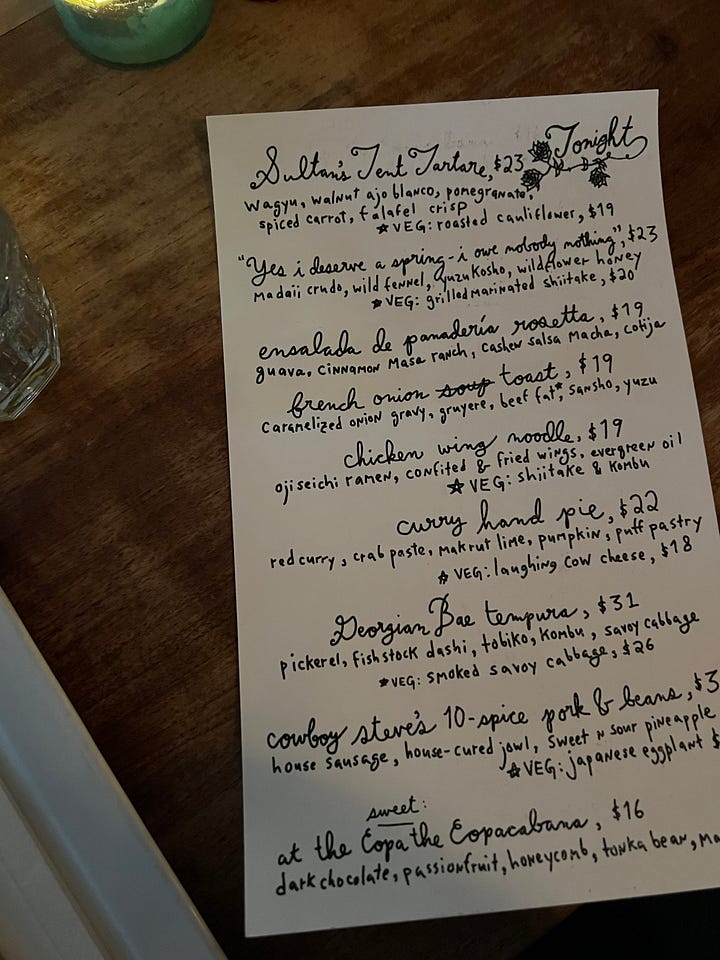 Tonight
Sultan's Tent Tartare, $23
wagyu, walnut ajo blanco, pomegranate,
spiced carrot, falafel crisp
★ VEG: roasted cauliflower, $19
"Yes i deserve a spring-i owe nobody nothing", $23
Madaii crudo, wild fennel, yuzu kosho, wildflower honey
★ VEG: grilled marinated shiitake, $20
ensalada de panadería rosetta, $19
guava, cinnamon masa ranch, cashew salsa macha, cotija
french onion soup toast, $19
caramelized onion gravy, gruyere, beef fat*, sansho, yuzu
chicken wing noodle, $19
ojiseichi ramen, confited & fried wings, evergreen oil
★ VEG: shiitake & kombu
curry hand pie, $22
red curry, crab paste, makrut lime, pumpkin, puff pastry
★ VEG: laughing cow cheese, $18
Georgian Bae tempura, $31
pickerel, fish stock dashi, tobiko, kombu, savoy cabbage
★ VEG: smoked savoy cabbage, $26
cowboy steve's 10-spice pork & beans, $3
house sausage, house-cured jowl, sweet n sour pineapple
★ VEG: japanese eggplant $
sweet:
at the Copa the Copacabana, $16
dark chocolate, passionfruit, honeycomb, tonka bean,